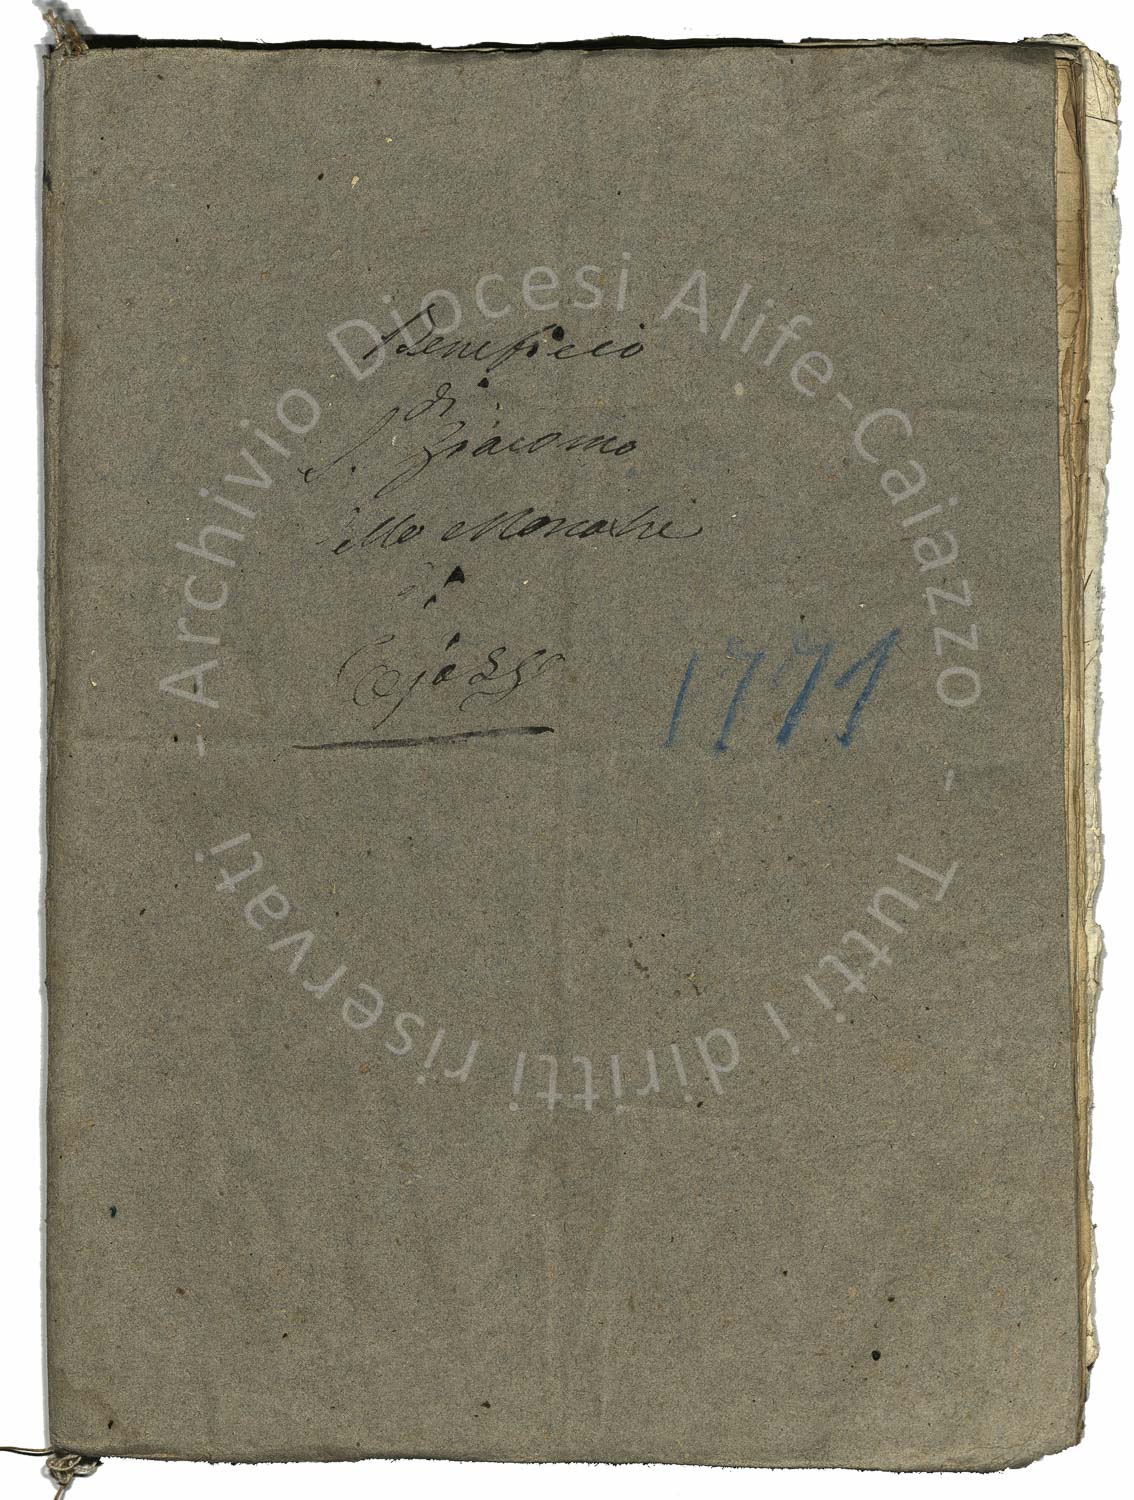 Beneficio
di
S. Giacomo
dello Monache
di
Cajazzo
1771
- Archivio Diocesi Alife-Caiazzo - Tutti i diritti riservati